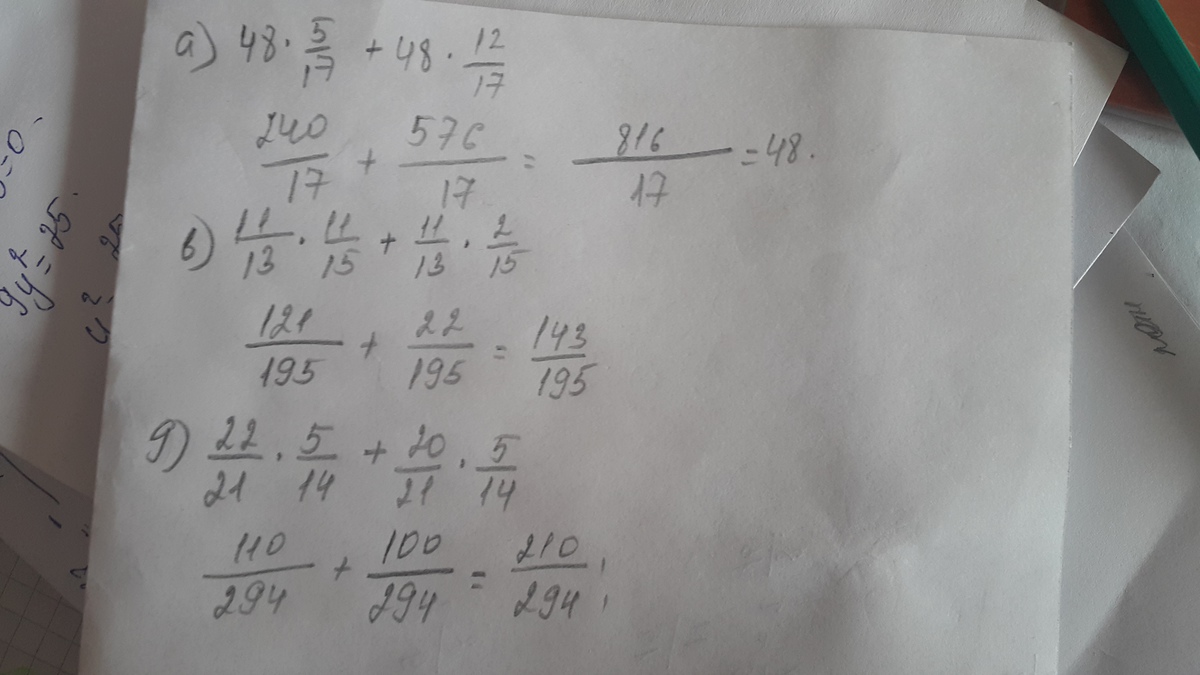 а) 48 · 5/17 + 48 · 12/17
240/17 + 576/17 = 816/17 = 48.
в) 11/13 · 11/15 + 11/13 · 2/15
121/195 + 22/195 = 143/195
д) 22/21 · 5/14 + 20/21 · 5/14
110/294 + 100/294 = 210/294;
=0.
9y² = 25.